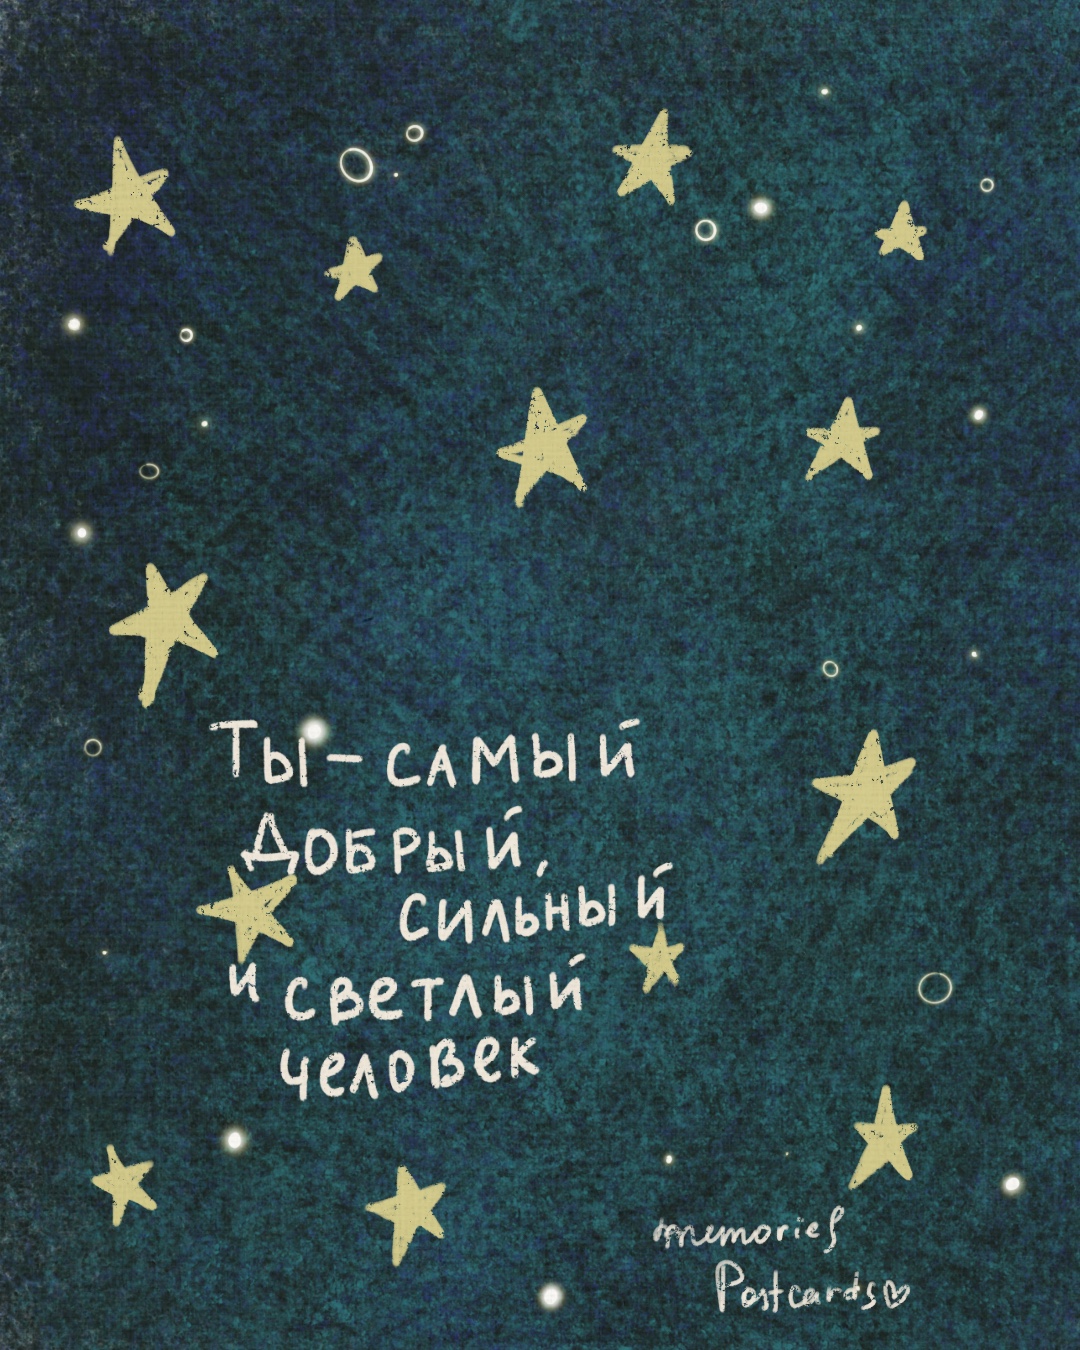 Ты – самый
добрый,
сильный
и светлый
человек
memories
Postcards♡